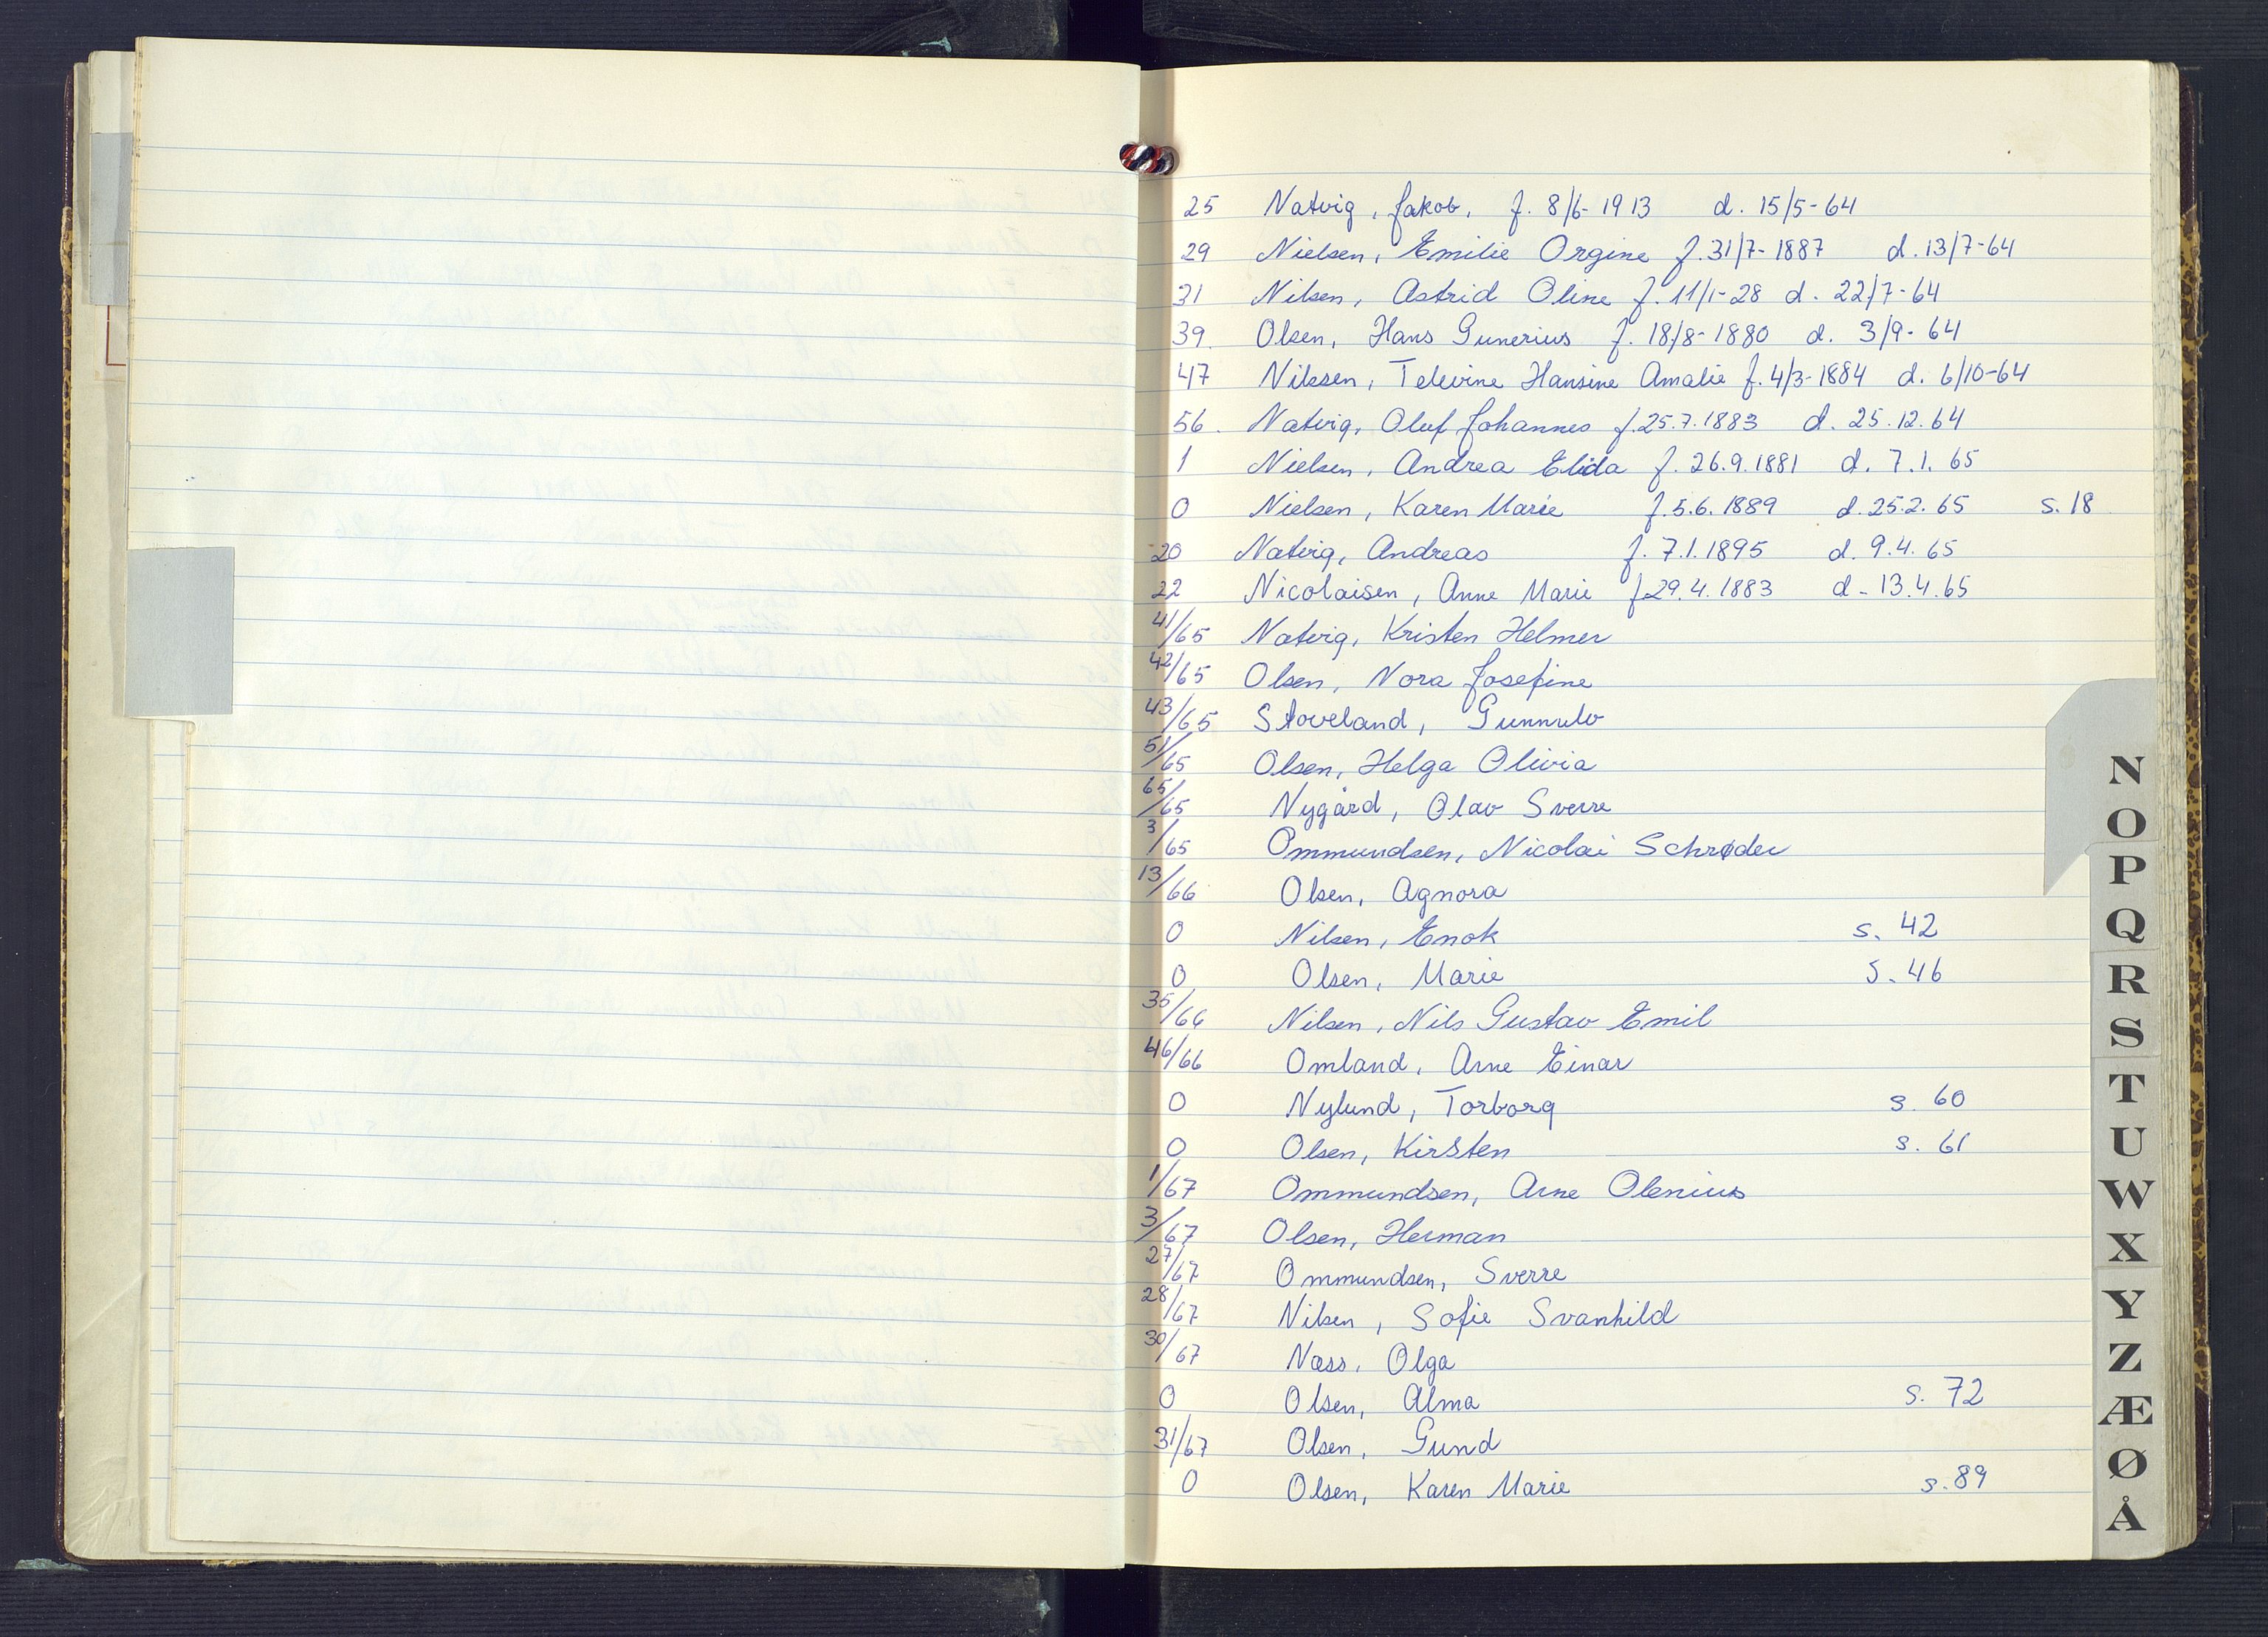 25 Natvig, Jakob, f. 8/6-1913 d. 15/5-64
29 Nielsen, Emilie Orgine f. 31/7-1887 d. 13/7-64
31 Nilsen, Astrid Oline f. 11/1-28 d. 22/7-64
39. Olsen, Hans Gunerius f. 18/8-1880 d. 3/9-64
47 Nilssen, Televine Hansine Amalie f. 4/3-1884 d. 6/10-64
56. Natvig, Oluf Johannes f. 25.7.1883 d. 25.12.64
1 Nielsen, Andrea Elida f. 26.9.1881 d. 7.1.65
0 Nielsen, Karen Marie f. 5.6.1889 d. 25.2.65 s. 18
20 Natvig, Andreas f. 7.1.1895 d. 9.4.65
22 Nicolaisen, Anne Marie f 29.4.1883 d - 13.4.65
41/65 Natvig, Kristen Helmer
42/65 Olsen, Nora Josefine
43/65 Stoveland, Gunnulv
51/65 Olsen, Helga Olivia
65/65 Nygård, Olav Sverre
3/65 Ommundsen, Nicolai Schrøder
13/66 Olsen, Agnora
0 Nilsen, Enok s. 42
0 Olsen, Marie s. 46
35/66 Nilsen, Nils Gustav Emil
46/66 Omland, Arne Einar
0 Nylund, Torborg s. 60
0 Olsen, Kirsten s. 61
1/67 Ommundsen, Arne Olenius
3/67 Olsen, Herman
27/67 Ommundsen, Sverre
28/67 Nilsen, Sofie Svanhild
30/67 Næss, Olga
0 Olsen, Alma s. 72
31/67 Olsen, Gund
0 Olsen, Karen Marie s. 89
N
O
P
Q
R
S
T
U
W
X
Y
Z
Æ
Ø
Å